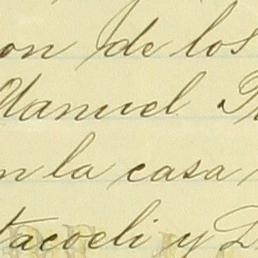 on de los
Manuel
en la casa
tacoeli y D